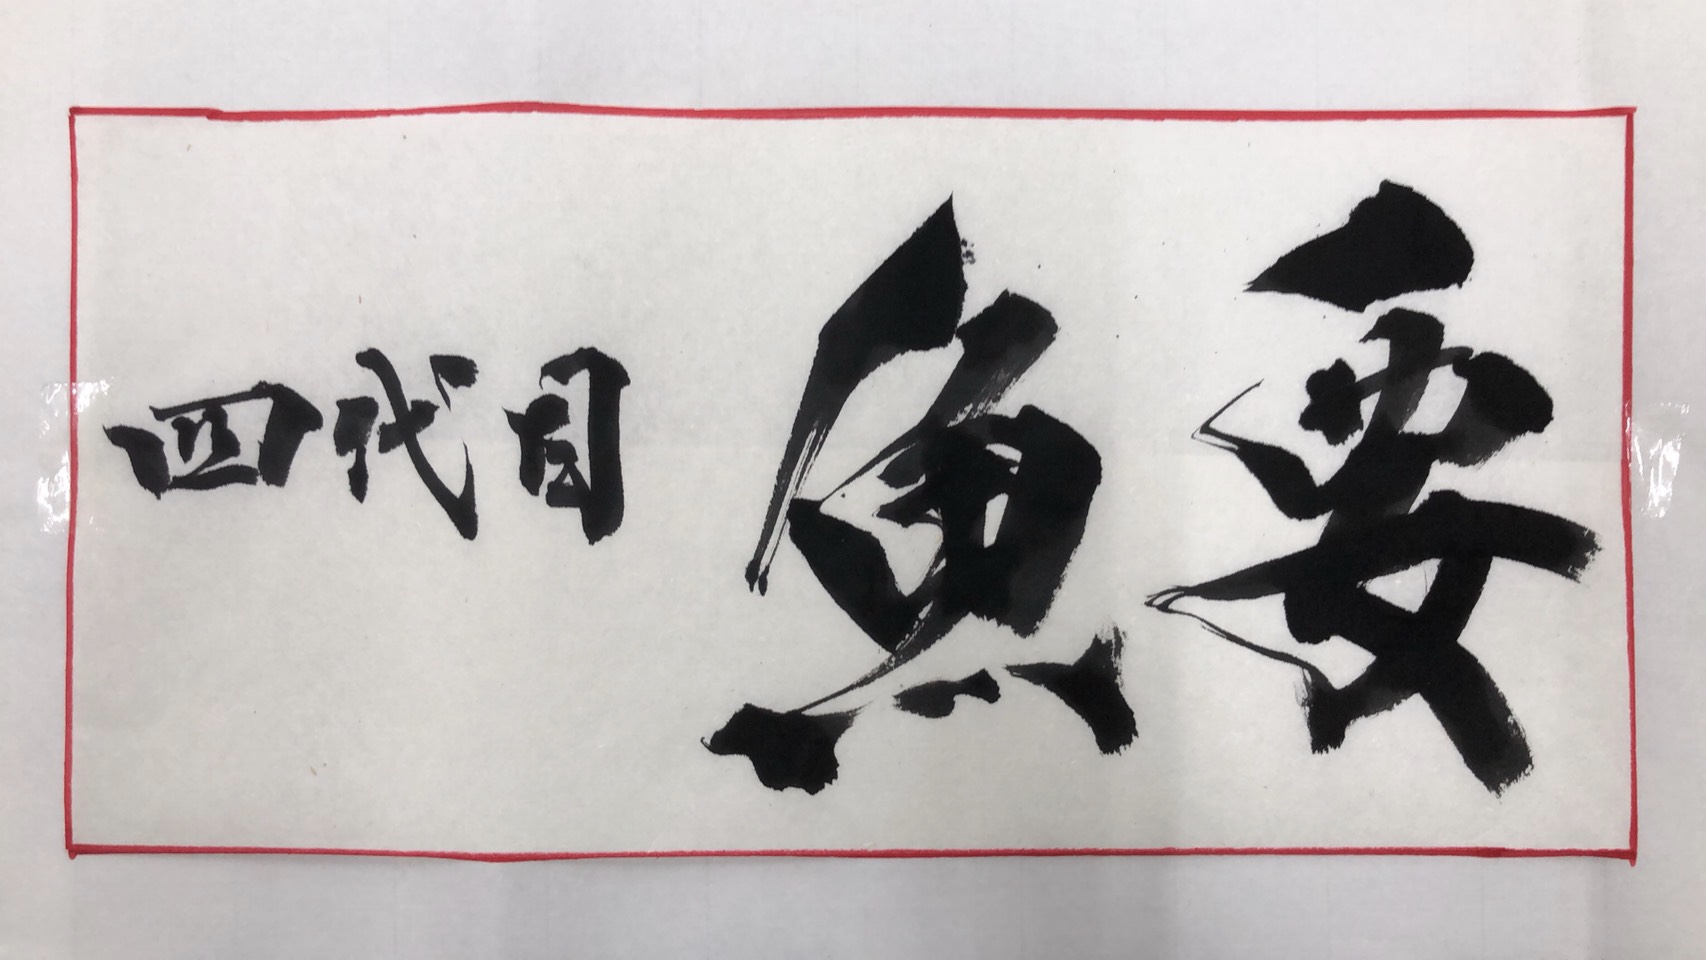 四代目 魚要